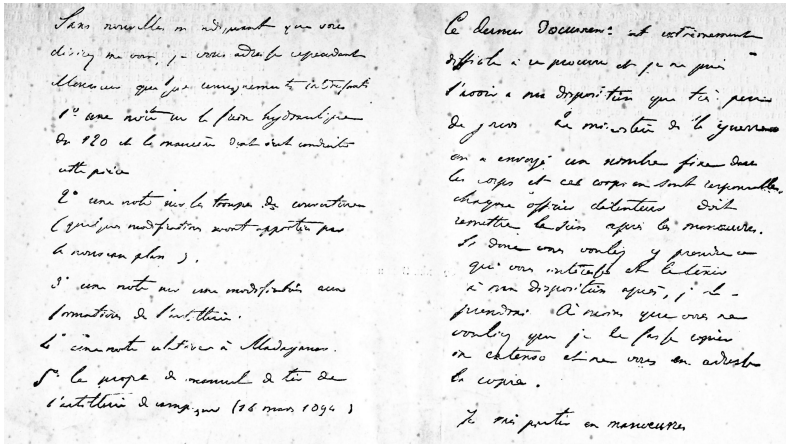 Sans nouvelles m'indiquant que vous
désirez me voir, je vous adresse cependant
Monsieur quelques renseignements intéressants
1º une note sur le frein hydraulique
du 120 et la manière dont s'est conduite
cette pièce
2º une note sur les troupes de couverture
(quelques modifications seront apportées par
le nouveau plan).
3º une note sur une modification aux
formations de l'artillerie.
4º une note relative à Madagascar.
5º le projet de manuel de tir de
l'artillerie de campagne (14 mars 1894)
Ce dernier Document est extrêmement
difficile à se procurer et je ne puis
l'avoir à ma disposition que très peu
de jours. Le ministère de la guerre
en a envoyé un nombre fixe dans
les corps et ces corps en sont responsables,
chaque officier détenteur doit
remettre le sien après les manœuvres.
Si donc vous voulez y prendre ce
qui vous intéresse et le tenir
à ma disposition après, je le
prendrai. À moins que vous ne
vouliez que je le fasse copier
in extenso et ne vous en adresse
la copie.
Je vais partir en manœuvres